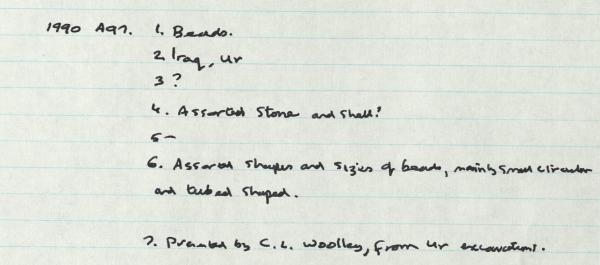 1990 A97. 1. Beads.
2. Iraq, Ur
3 ?
4. Assorted Stone and Shell?
5 —
6. Assorted shapes and sizes of beads, mainly small circular
and tubed shaped.
7. Presented by C. L. Woolley, from Ur excavations.